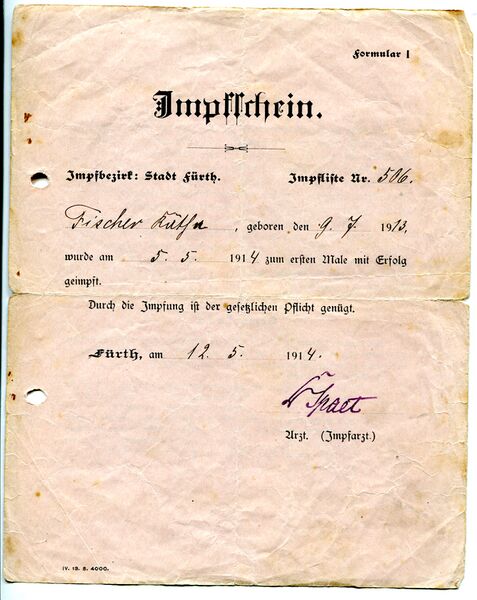 Formular I
Impfschein.
Impfbezirk: Stadt Fürth. Impfliste Nr. 506.
Fischer Käthe, geboren den 9. 7 1913,
wurde am 5. 5. 1914 zum ersten Male mit Erfolg
geimpft.
Durch die Impfung ist der gesetzlichen Pflicht genügt.
Fürth, am 12. 5. 1914.
Dr Spaet
Arzt. (Impfarzt.)
IV. 13. 8. 4000.